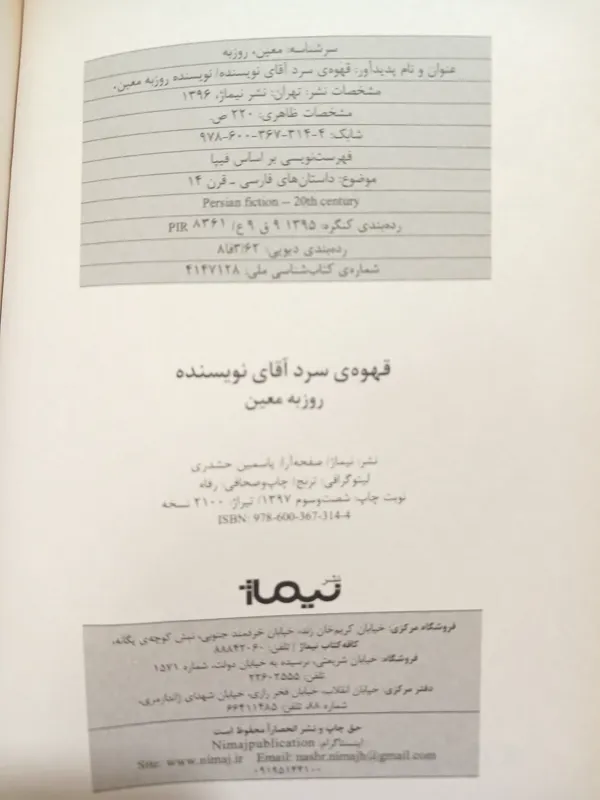 سرشناسه: معین، روزبه
عنوان و نام پدیدآور: قهوه‌ی سرد آقای نویسنده/ نویسنده روزبه معین.
مشخصات نشر: تهران: نشر نیماژ، ۱۳۹۶
مشخصات ظاهری: ۲۲۰ ص.
شابک: ۴-۳۱۴-۳۶۷-۶۰۰-۹۷۸
فهرست‌نویسی بر اساس فیپا
موضوع: داستان‌های فارسی - قرن ۱۴
Persian fiction -- 20th century
رده‌بندی کنگره: ۱۳۹۵ ۹ ق ۹ ع/ PIR ۸۳۶۱
رده‌بندی دیویی: ۳/۶۲فا۸
شماره‌ی کتاب‌شناسی ملی: ۴۱۴۷۱۲۸
قهوه‌ی سرد آقای نویسنده
روزبه معین
نشر: نیماژ/ صفحه‌آرا: یاسمین حشدری
لیتوگرافی: ترنج/ چاپ‌وصحافی: رفاه
نوبت چاپ: شصت‌وسوم ۱۳۹۷/ تیراژ: ۲۱۰۰ نسخه
ISBN: 978-600-367-314-4
نشر
نیماژ
فروشگاه مرکزی: خیابان کریم‌خان زند، خیابان خردمند جنوبی، نبش کوچه‌ی یگانه،
کافه‌کتاب نیماژ / تلفن: ۸۸۸۴۲۰۶۰
فروشگاه: خیابان شریعتی، نرسیده به خیابان دولت، شماره ۱۵۷۱
تلفن: ۲۲۶۰۲۵۵۵
دفتر مرکزی: خیابان انقلاب، خیابان فخر رازی، خیابان شهدای ژاندارمری،
شماره ۸۸، تلفن: ۶۶۴۱۱۴۸۵
حق چاپ و نشر انحصاراً محفوظ است
اینستاگرام: Nimajpublication
Site: www.nimaj.ir Email: nashr.nimajh@gmail.com
۰۹۱۹۵۱۴۴۱۰۰